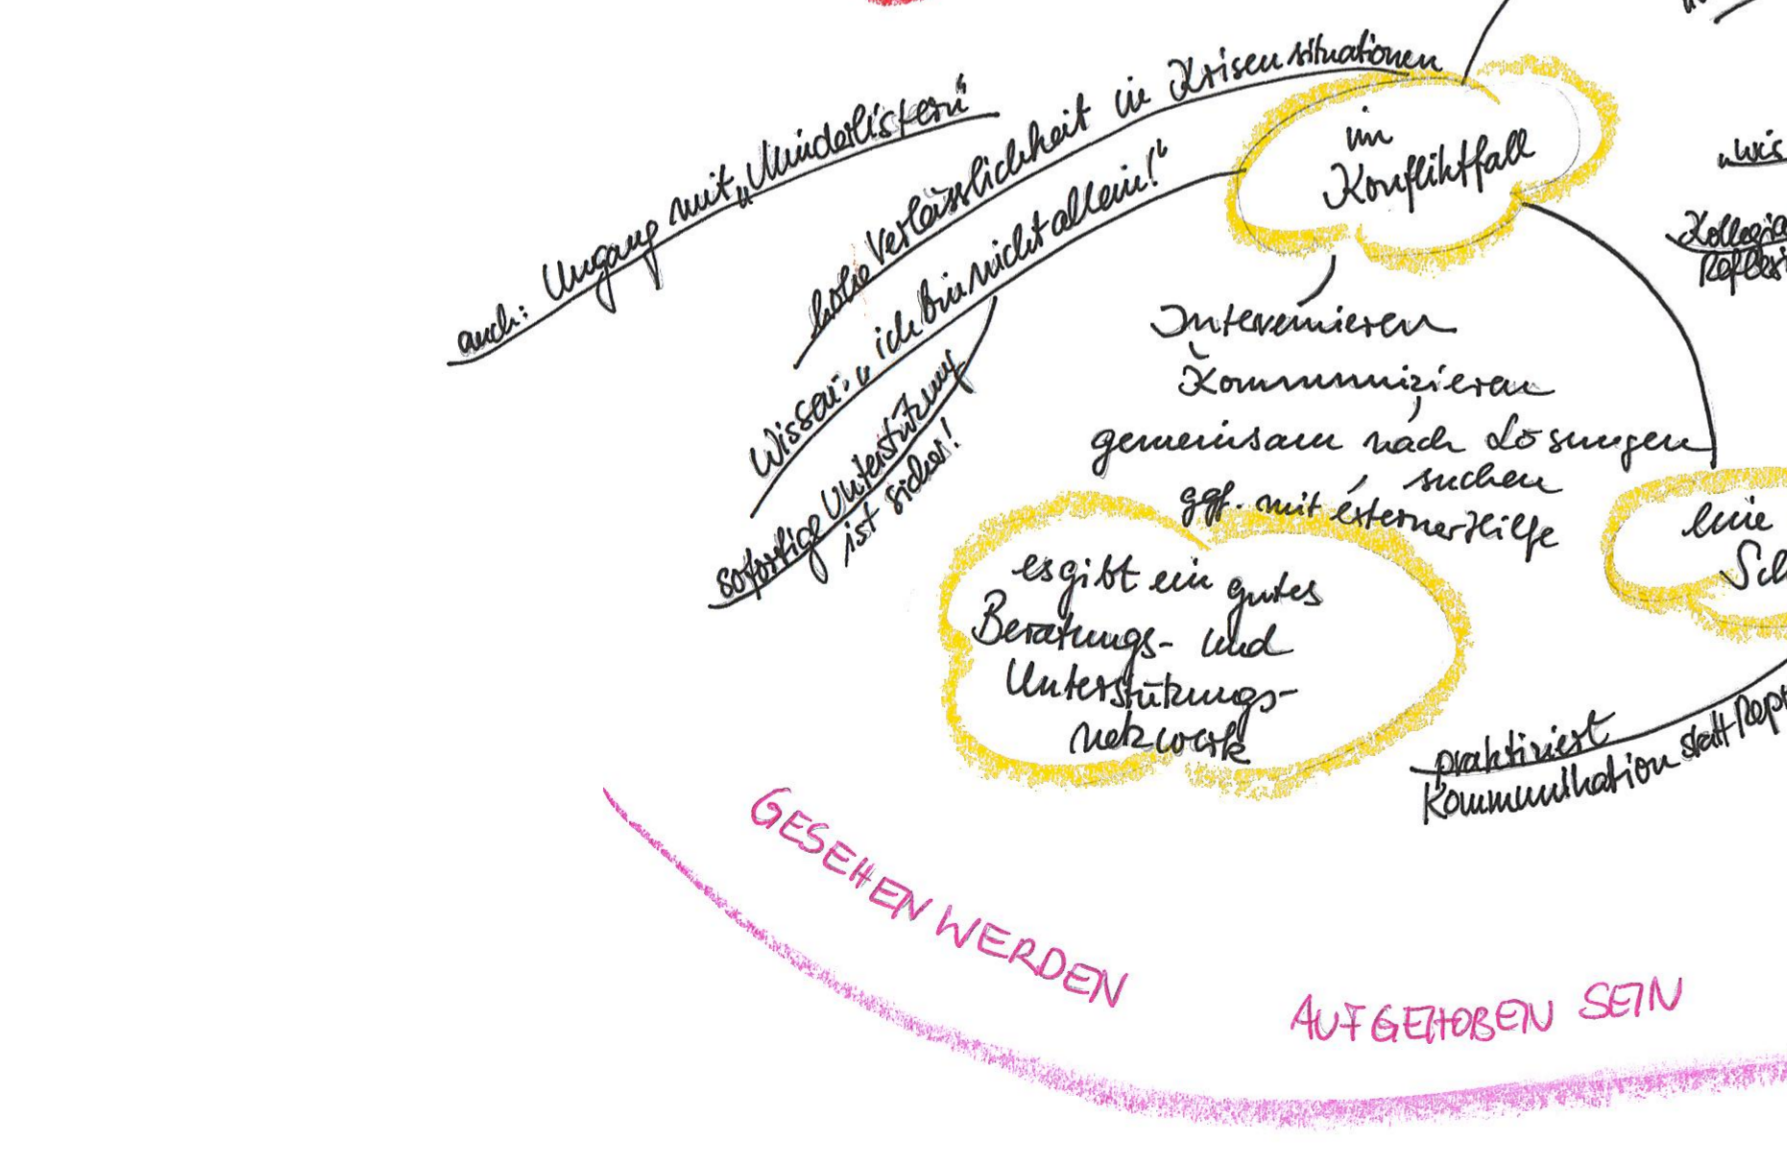 auch: Umgang mit „Minderlistern“
hohe Verlässlichkeit in Krisensituationen
Wissen: „ich bin nicht allein!“
sofortige Unterstützung
ist sicher!
im
Konfliktfall
Intervenieren
Kommunizieren,
gemeinsam nach Lösungen
suchen,
ggf. mit externer Hilfe
es gibt ein gutes
Beratungs- und
Unterstützungs-
netzwerk
eine
Sch
praktiziert
Kommunikation statt Rep
Kollegia
Reflexi
„wis
GESEHEN WERDEN
AUFGEHOBEN SEIN